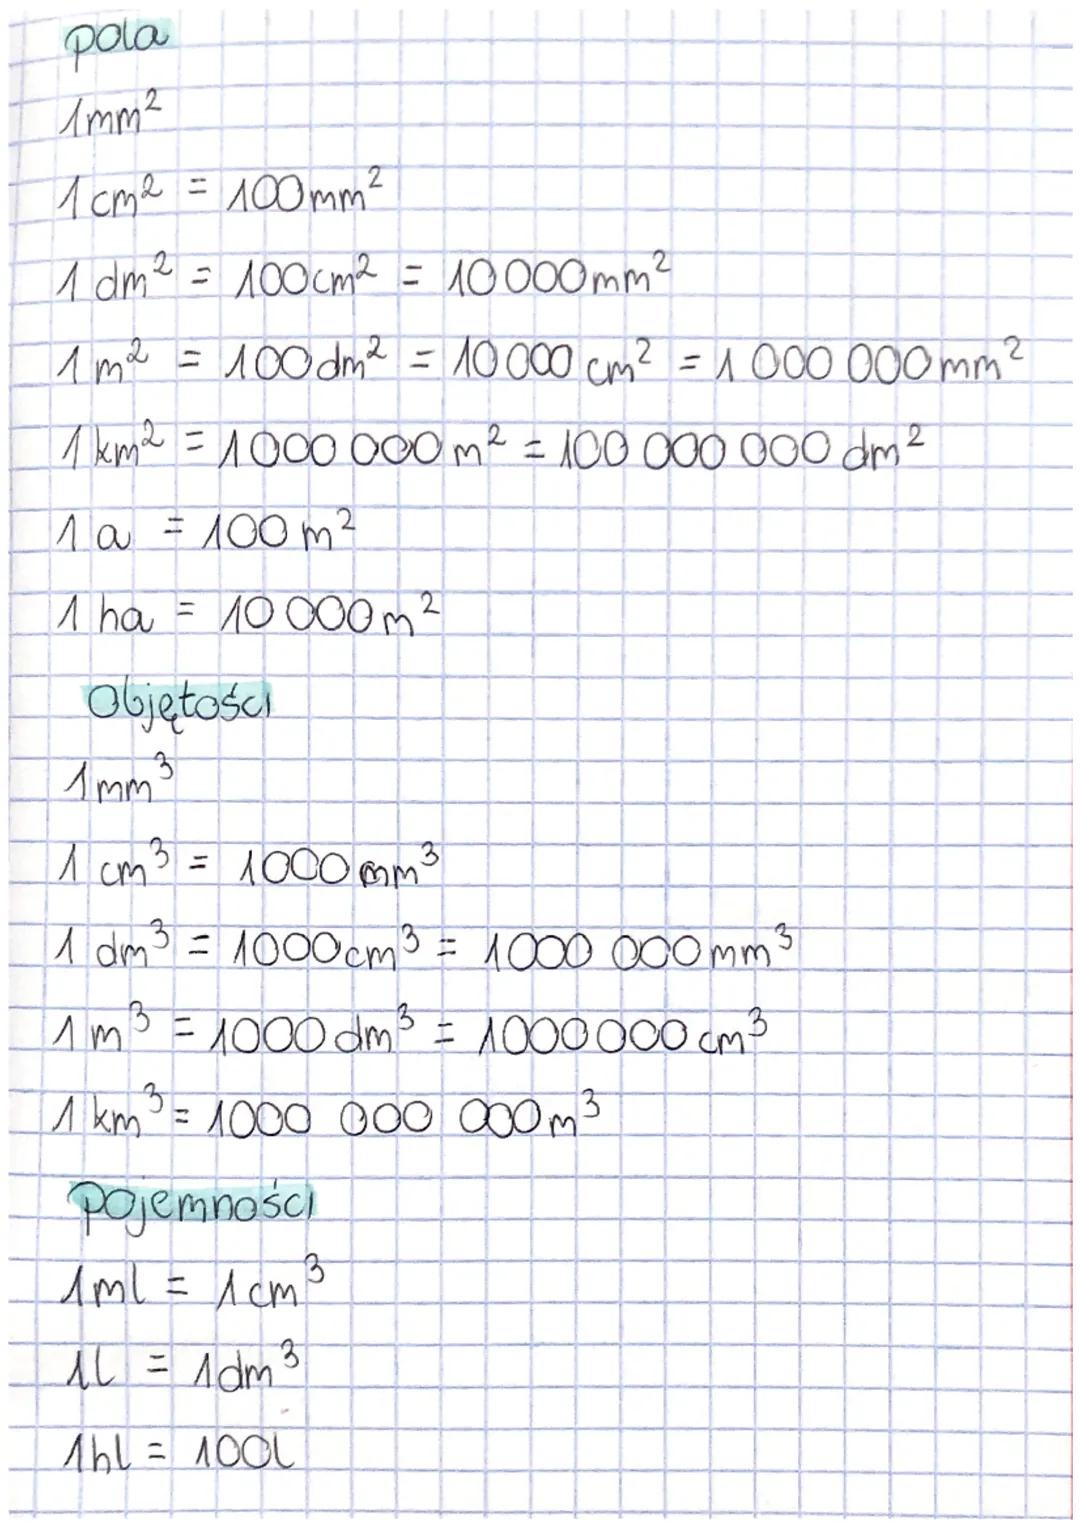 pola
1mm²
1cm² = 100mm²
1 dm² = 100cm² = 10 000mm²
1 m² = 100dm² = 10 000 cm² = 1 000 000mm²
1 km² = 1000 000 m² = 100 000 000 dm²
1 a = 100 m²
1 ha = 10 000 m²
Objętości
1mm³
1 cm³ = 1000mm³
1 dm³ = 1000cm³ = 1000 000mm³
1 m³ = 1000 dm³ = 1000000 cm³
1 km³ = 1000 000 000m³
pojemności
1ml = 1cm³
1l = 1dm³
1hl = 100l